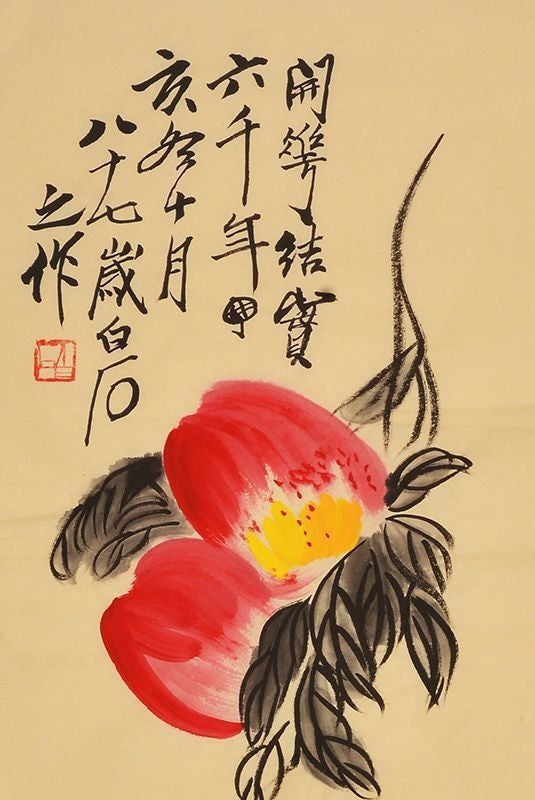 開華結實
六千年甲
亥冬十月
八十七歲白石
之作